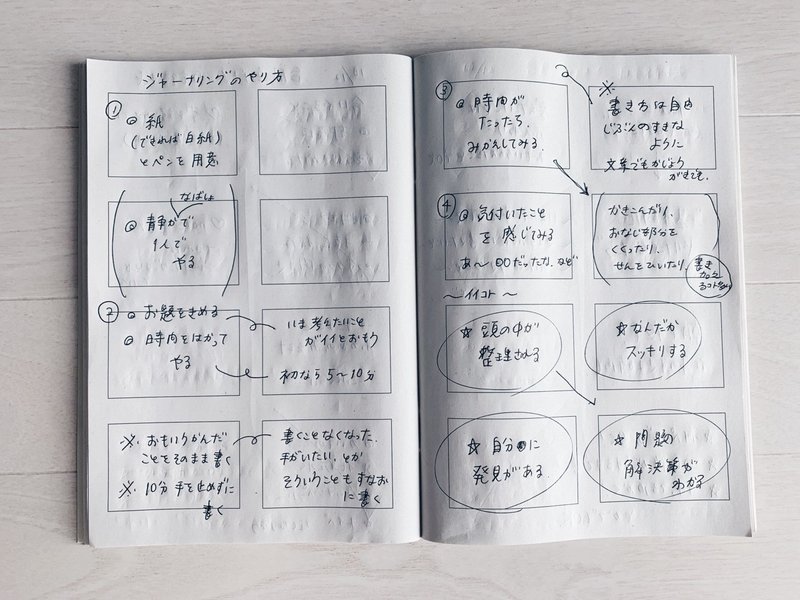 ジャーナリングのやり方
①
◎ 紙
(できれば白紙)
とペンを用意
なばしょ
◎ 静かで
1人で
やる
②
◎ お題をきめる
◎ 時間をはかって
やる
いま考えたいこと
がイイとおもう
初なら5〜10分
※ おもいうかんだ
ことをそのまま書く
※ 10分手を止めずに
書く
書くことなくなった、
手がいたい、とか
そういうこともすなお
に書く
③
◎ 時間が
たったら、
みかえしてみる
※
書き方は自由
じぶんのすきな
ように
文章でもかじょう
がきでも、
④
◎ 気付いたこと
を感じてみる
あ〜〇〇だったな、など
かきこんだり、
おなじ部分を
くくったり、
せんをひいたり
書き
加え
〜イイコト〜
☆ 頭の中が
整理される
☆ なんだか
スッキリする
☆ 自分に
発見がある。
☆ 問題の
解決策が
わかる